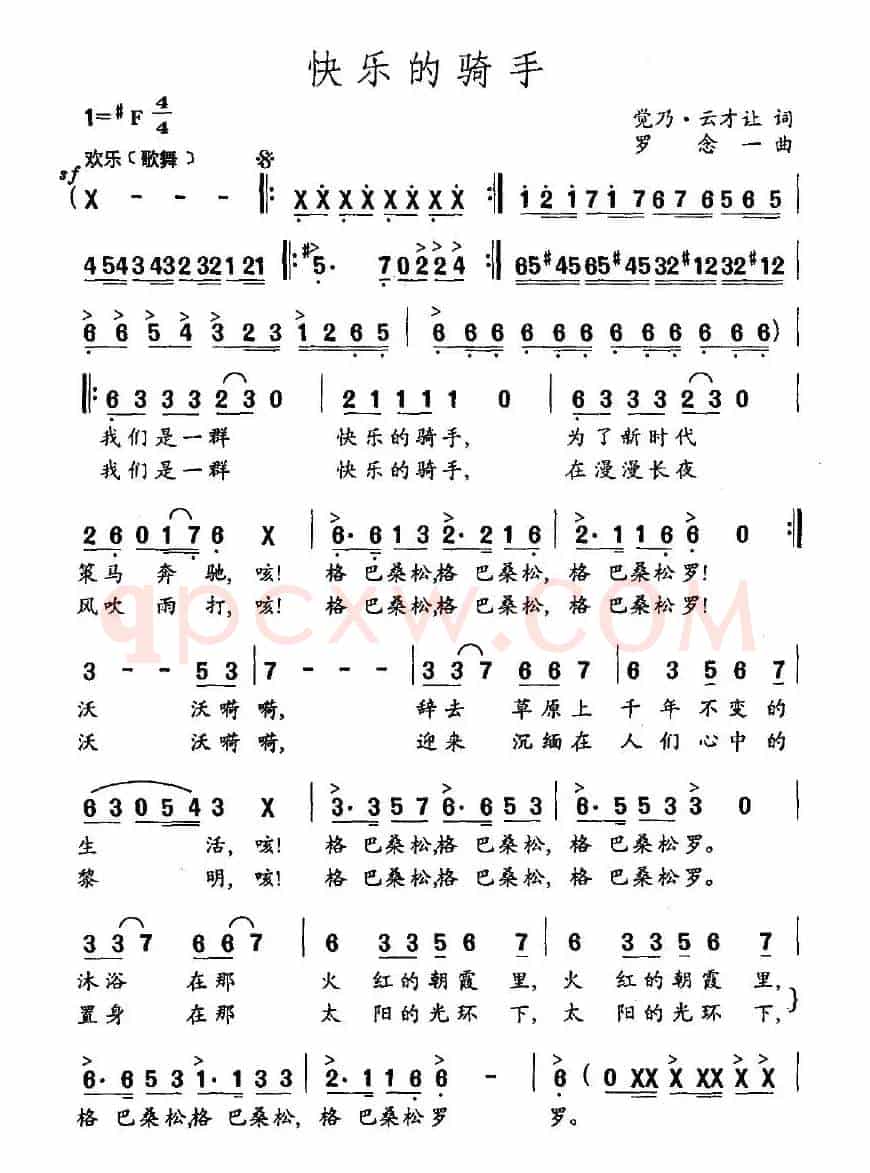 快乐的骑手
1=#F 4/4
觉乃·云才让 词
罗 念 一 曲
欢乐(歌舞)
sf
(X - - - ‖: X X X X X X X X :‖ 1 2 1 7 1 7 6 7 6 5 6 5 |
4543 432 2321 121 ‖: #5· 7 0 2 2 2 4 :‖ 65#45 65#45 32#12 32#12 |
6 6 5 4 3 2 3 1 2 6 5 | 6 6 6 6 6 6 6 6 6 6 6 6) |
‖: 6 3 3 3 2 3 0 | 2 1 1 1 1 1 0 | 6 3 3 3 2 3 0 |
我们是一群 快乐的骑手, 为了新时代
我们是一群 快乐的骑手, 在漫漫长夜
2 6 0 1 7 6 X | 6· 6 1 3 2· 2 1 6 | 2· 1 1 6 6 0 :‖
策马 奔 驰, 咳! 格 巴桑松,格 巴桑松, 格 巴桑松罗!
风吹 雨 打, 咳! 格 巴桑松,格 巴桑松, 格 巴桑松罗!
qpcxw.COM
3 - - 5 3 | 7 - - - | 3 3 7 6 6 7 | 6 3 5 6 7 |
沃 沃嗬嗬, 辞去 草原上 千年不变的
沃 沃嗬嗬, 迎来 沉缅在 人们心中的
6 3 0 5 4 3 X | 3· 3 5 7 6· 6 5 3 | 6· 5 5 3 3 0 |
生 活, 咳! 格 巴桑松,格 巴桑松, 格 巴桑松罗。
黎 明, 咳! 格 巴桑松,格 巴桑松, 格 巴桑松罗。
3 3 7 6 6 7 | 6 3 3 5 6 7 | 6 3 3 5 6 7 |
沐浴 在那 火 红的朝霞 里, 火 红的朝霞里,
置身 在那 太 阳的光环 下, 太 阳的光环下,}
6· 6 5 3 1· 1 3 3 | 2· 1 1 6 6 - | 6 ( 0 XX X XX X X |
格 巴桑松,格 巴桑松, 格 巴桑松罗 罗。